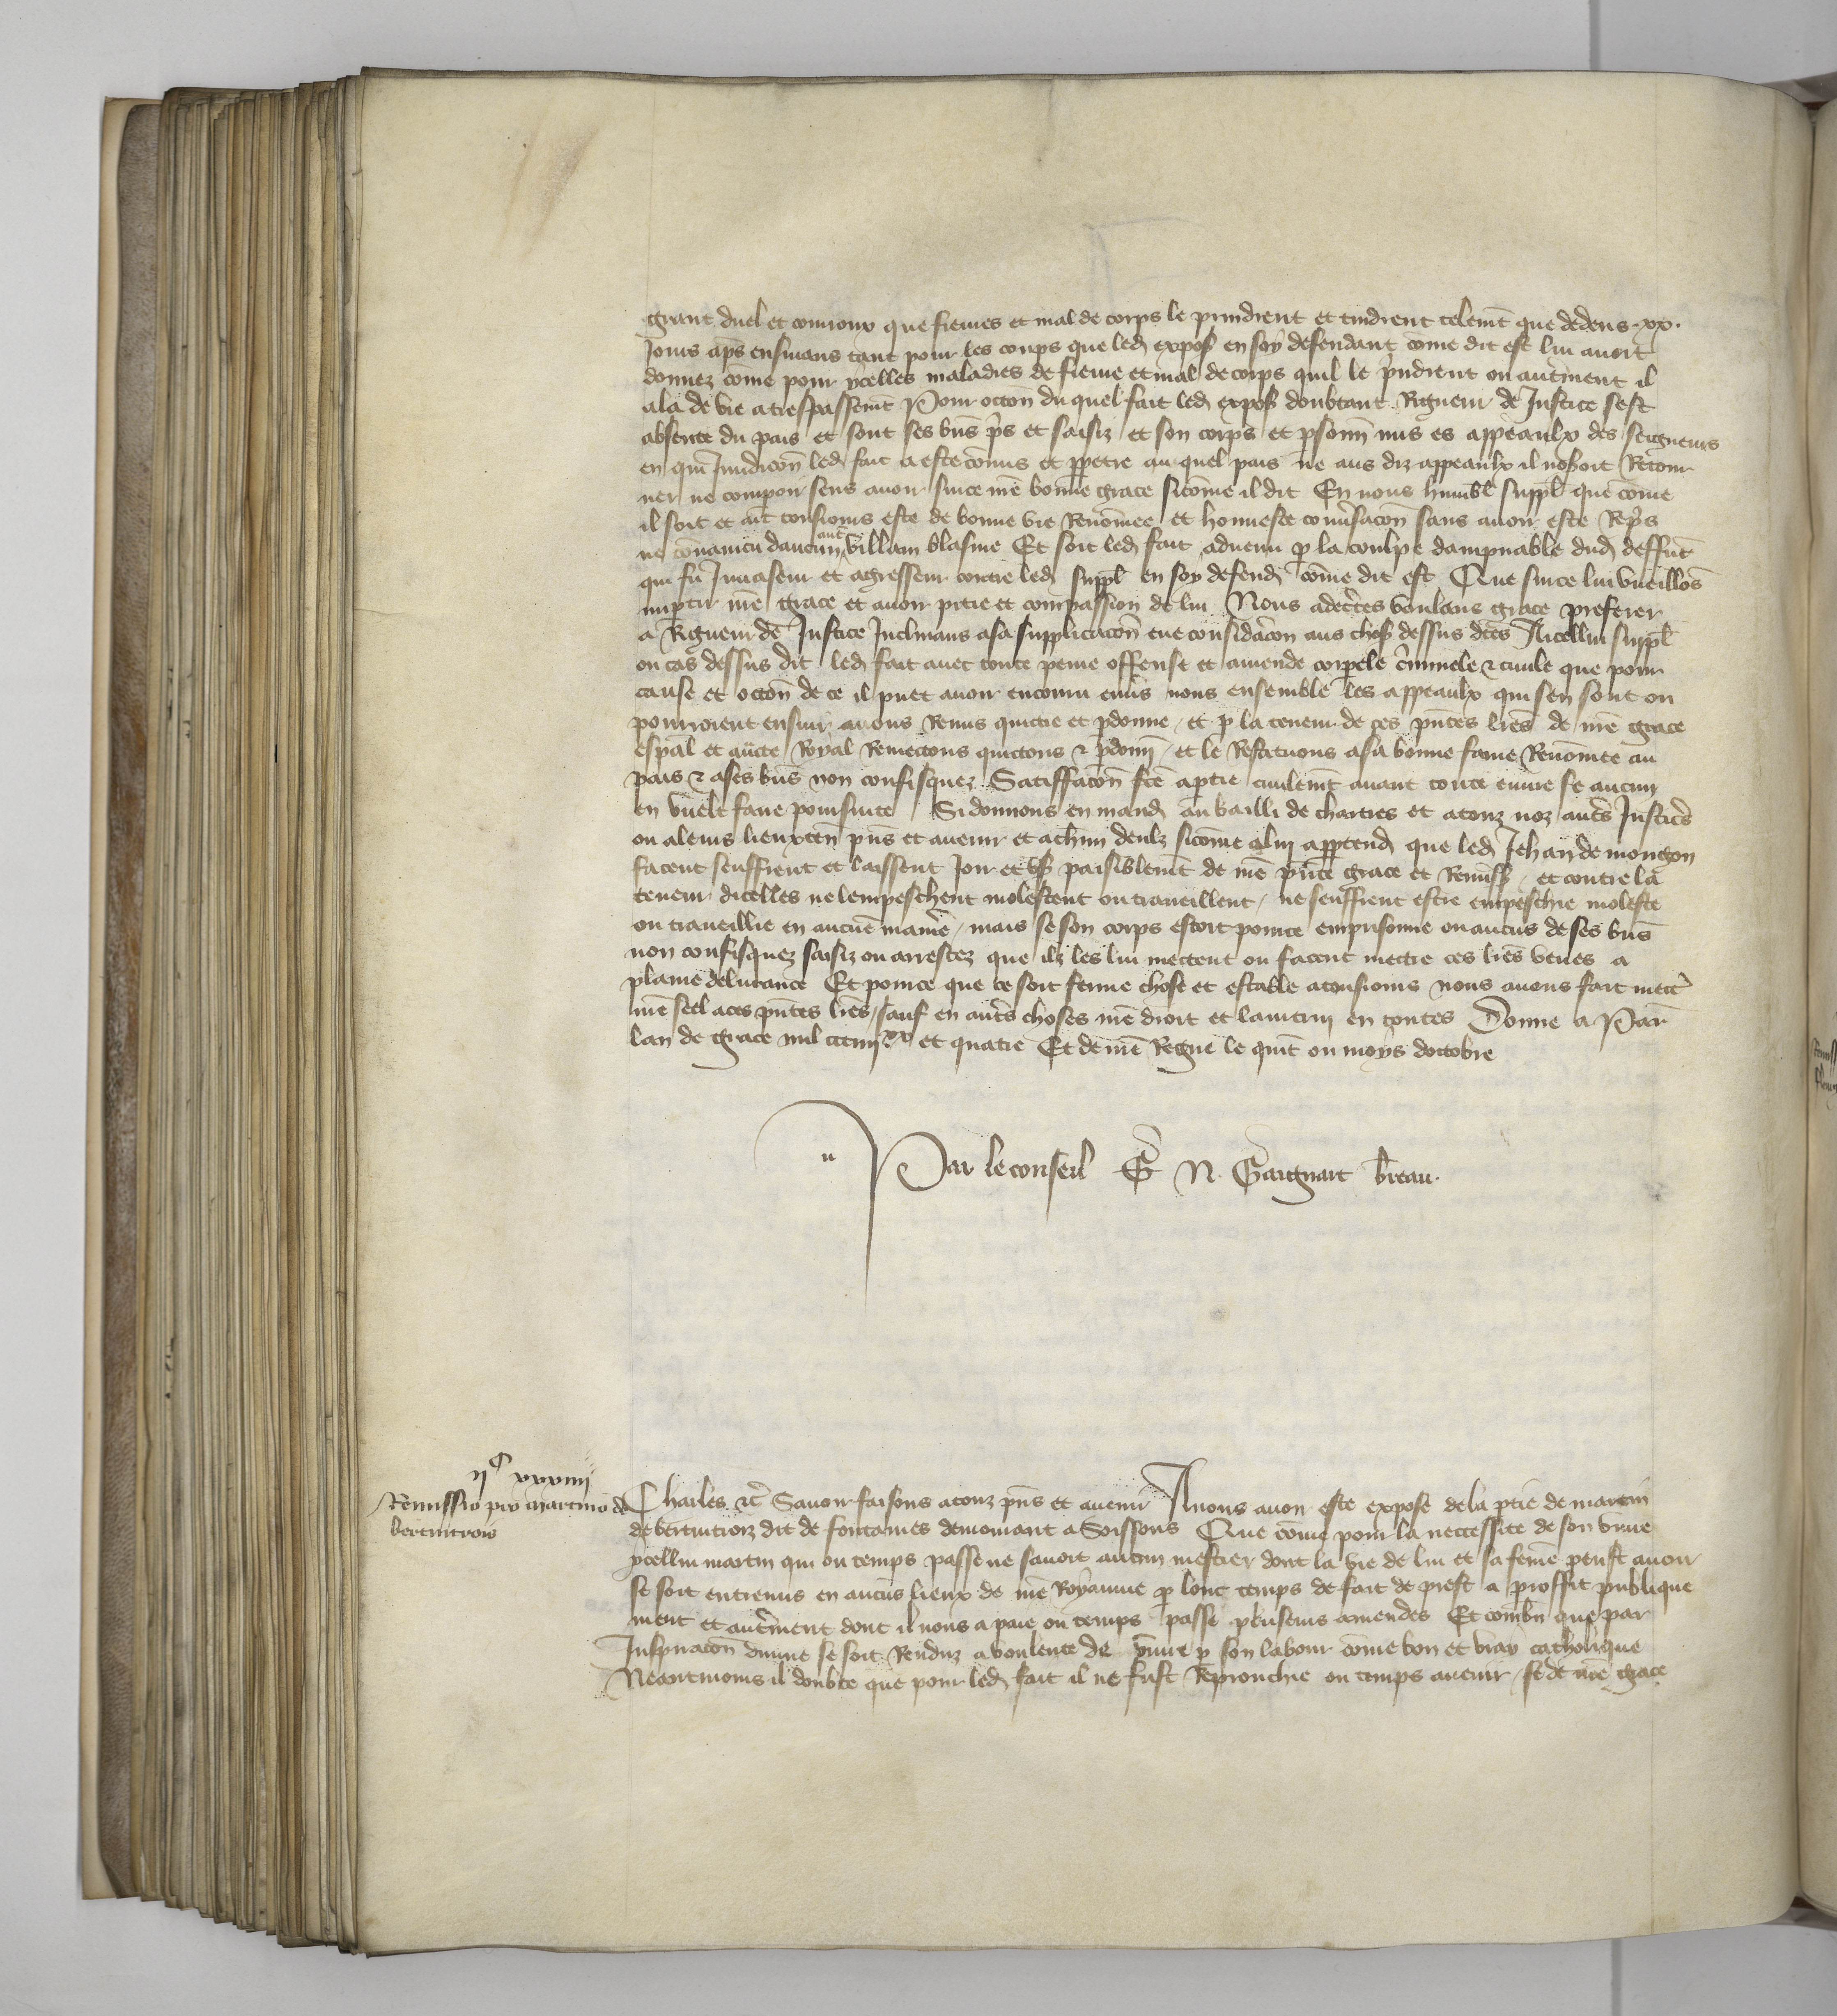 grant duel et courroux que fieures et mal de corps le prindrent et tindrent telemt̄ que dedens .xx.
Jours ap̄s ensuiuans tant pour les coups que led̄ expos̄ en soy defendant com̄e dit est lui auoit
donnez com̄e pour ycelles maladies de fieure et mal de corps quil le p̄ndrent ou aut̄ment il
ala de vie a trespassemt̄ Pour occōn du quel fait led̄ expos̄ doubtant Rigueur de Justice sest
absente du pais et sont ses biēs p̄s et saisiz et son corps et psonn̄ mis es appeaulx des seigneurs
en qui Juridicōn led̄ fait a este com̄is et ppetre au quel pais ne aus diz appeaulx il noseroit Retour
ner ne comparoir sens auoir surce nr̄e bonne grace sicom̄e il dit En nous humbl̄ suppl̄ que com̄e
il soit et ait tousiours este de bonne vie Renom̄ee et honneste conūsacōn sans auoir este Rep̄s
ne conuaincu daucun aut̄ villain blasme Et soit led̄ fait aduenu p la coulpe dampnable dud̄ deffūt
qui fu Inuaseur et agresseur contre led̄ suppl̄ en soy defend̄ com̄e dit est Que surce lui vueillōs
imp̄tir nr̄e grace et auoir pitie et compassion de lui Nous adec̄tes voulans grace preferer
a Rigueur de Justice Inclinans a sa supplicacōn eue considācōn aus chos̄ dessus dc̄tes A icellui suppl̄
ou cas dessus dit led̄ fait auec toute peine offense et amende corporele c̄iminele ⁊ ciuile que pour
cause et occōn de ce il puet auoir encouru enūs nous ensemble les appeaulx qui sen sont ou
pourroient ensuir auons Remis quictie et pdonne / et p la teneur de ces pn̄tes lr̄es de nr̄e grace
esp̄al et auc̄te Royal Remettons quictons ⁊ pdonn̄ / et le Restituons a sa bonne fame Renom̄ee au
pais ⁊ a ses biēs non confisquez Satisffacōn fc̄e a ptie ciuilemt̄ auant toute euure se aucun
en vuelt faire poursuite Si donnons en mand̄ au bailli de chartres et a touz noz aut̄s Justic̄s
ou a leurs lieuxten̄ pn̄s et auenir et a ch̄un deulx sicom̄e a lui apptend̄ que led̄ Jehan de mongon
facent seuffrent et laissent Joir et vs̄ paisiblemt̄ de nr̄e pn̄te grace et Remiss̄ / et contre la
teneur dicelles ne lempeschent molestent ou trauueillent / ne seuffrent estre empeschie moleste
ou traueillie en aucune manie̊re / mais se son corps estoit pource emprisonne ou aucūs de ses biēs
non confisquez saisiz ou arrestez que ilz les lui mettent ou facent mettre ces lr̄es veues a
plaine deliurance Et pource que ce soit ferme chose et estable a tousiours nous auons fait mett̄
nr̄e seel a ces pn̄tes lr̄es / sauf en aut̄s choses nr̄e droit et lautruy en toutes Donne a Par̄
lan de grace mil ccciiii.xx et quatre Et de nr̄e Regne le quit̄ ou moys doctobre
Par le conseil Ḡ N. Gaignart b̄reau.
ijC xxxiiii
Remissio pro martino de
bertintrois
Charles ⁊c̄ Sauoir faisons a touz pn̄s et auenir A nous auoir este expose de la ptie de martin
de bertintroiz dit de fontaines demourant a Soissons Que com̄e pour la neccessite de son viure
ycellui martin qui ou temps passe ne sauoit aucun mestier dont la vie de lui et sa fem̄e peust auoir
se soit entremis en aucūs lieux de nr̄e Royaume p lonc temps de fait de prest a proffit publique
ment et aut̄ment dont il nous a paie ou temps passe pluseurs amendes Et combn̄ que par
Inspiracōn diuine se soit Renduz a voulente de viure p son labour com̄e bon et vray catholique
Neantmoins il doubte que pour led̄ fait il ne fust Reprouchie ou temps auenir / se de nr̄e grace